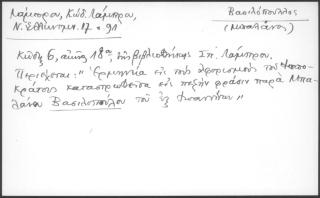 Λάμπρου, Κώδ. Λάμπρου,
Ν. Ἑλληνομν. 17 σ 91
Βασιλόπουλος
(Μπαλάνος)
Κῶδιξ 6, αἰῶνος 18ου, τῆς βιβλιοθήκης Σπ. Λάμπρου.
Περιέχεται: "Ἑρμηνεία εἰς τοὺς ἀφορισμοὺς τοῦ Ἱππο-
κράτους καταστρωθεῖσα εἰς πεζὴν φράσιν παρὰ Μπα-
λάνου Βασιλοπούλου τοῦ ἐξ Ἰωαννίνων"